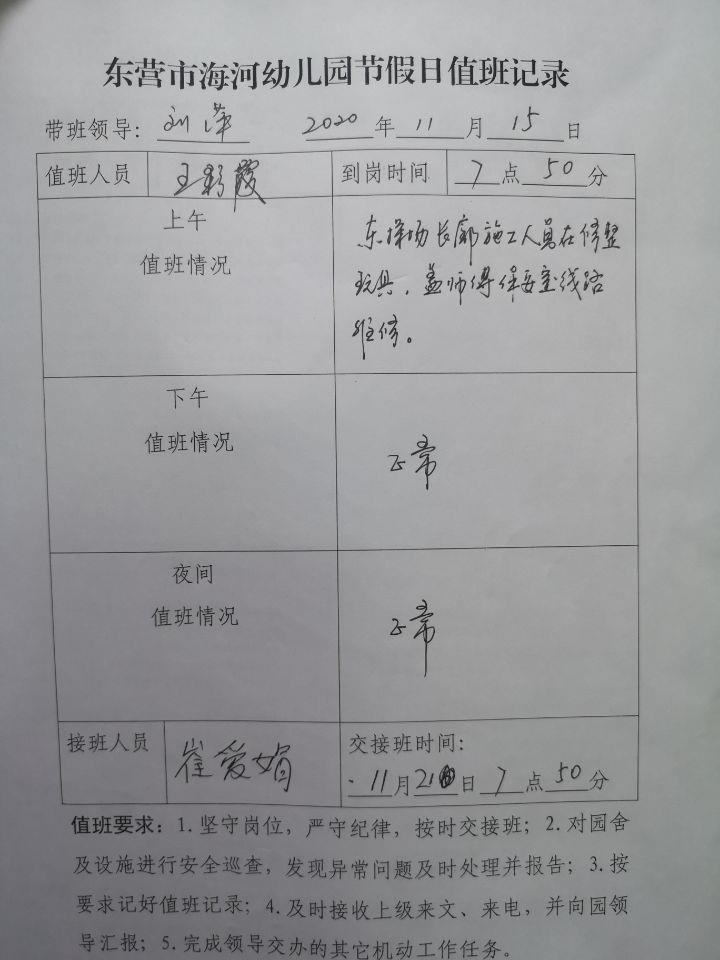 东营市海河幼儿园节假日值班记录
带班领导: 刘萍 2020 年 11 月 15 日
值班人员 王彩霞 到岗时间 7 点 50 分
上午
值班情况
东操场长廊施工人员在修整
玩具，盖师傅保安室线路
维修。
下午
值班情况
正常
夜间
值班情况
正常
接班人员 崔爱娟 交接班时间:
11 月 21 日 7 点 50 分
值班要求: 1. 坚守岗位，严守纪律，按时交接班；2. 对园舍
及设施进行安全巡查，发现异常问题及时处理并报告；3. 按
要求记好值班记录；4. 及时接收上级来文、来电，并向园领
导汇报；5. 完成领导交办的其它机动工作任务。